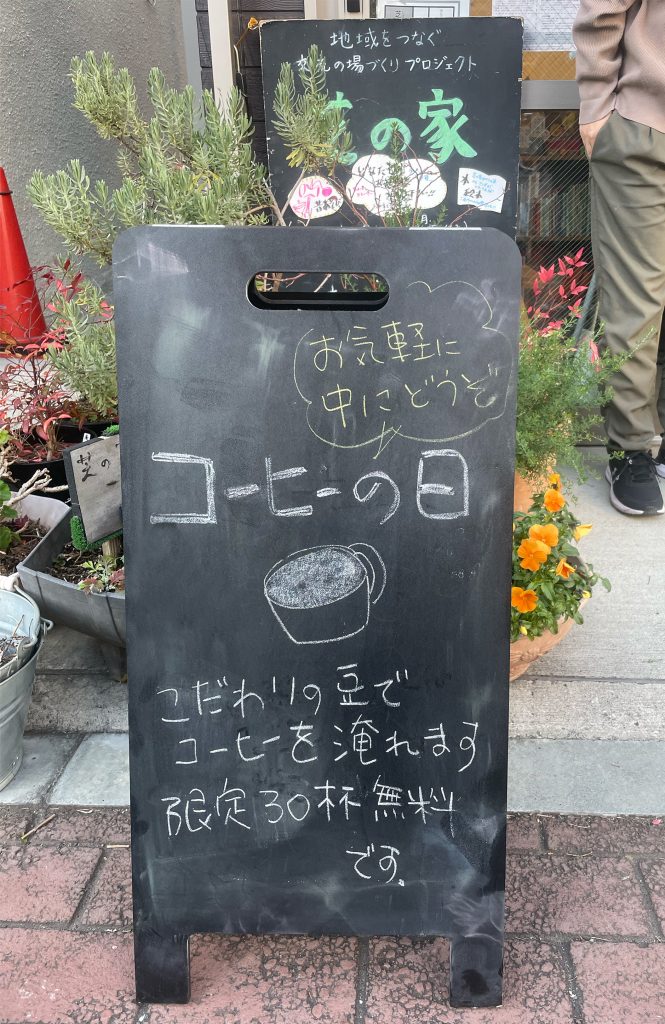 地域をつなぐ
の場づくりプロジェクト
の家
お気軽に
中にどうぞ
コーヒーの日
こだわりの豆で
コーヒーを淹れます
限定30杯無料
です。